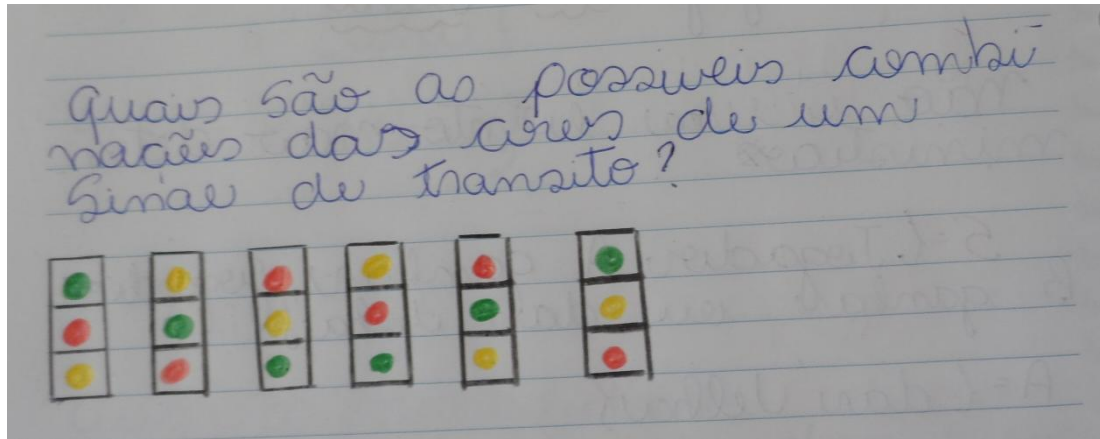 Quais são as possiveis combi
nações das cores de um
Sinal de transito?